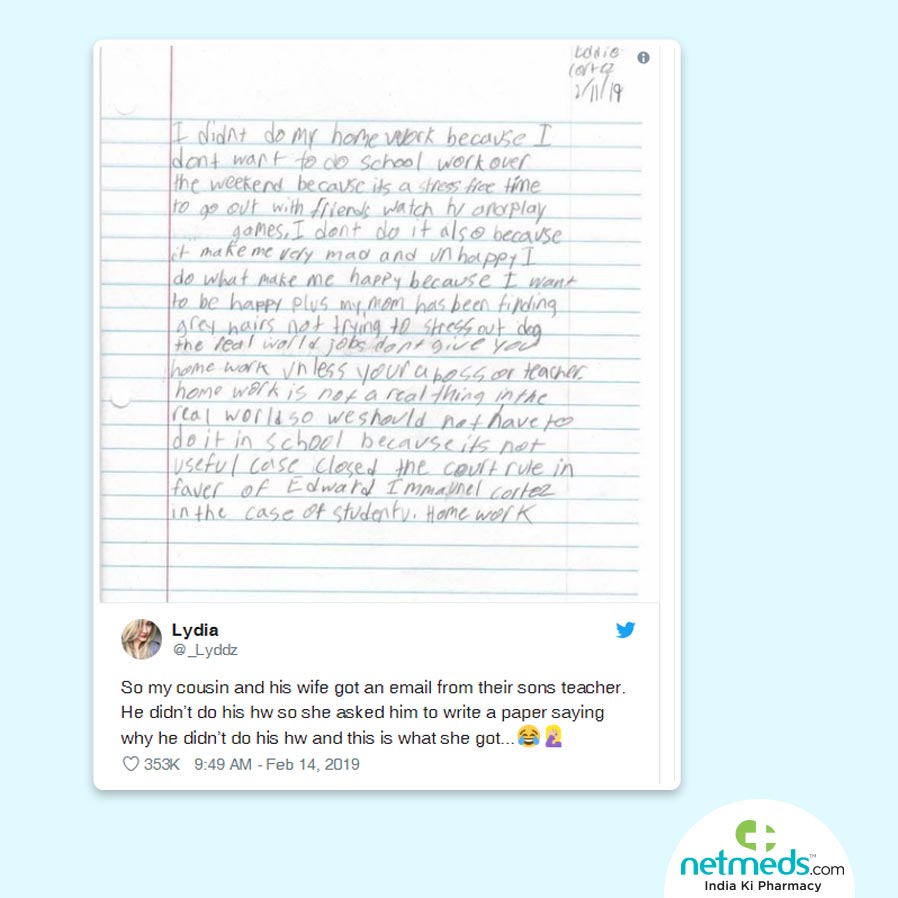 Eddie
Cortez
2/11/19
I didnt do my home work because I
dont want to do school work over
the weekend because its a stress free time
to go out with friends watch tv and play
games, I dont do it also because
it make me very mad and unhappy I
do what make me happy because I want
to be happy plus my mom has been finding
grey hairs not trying to stress out dog
the real world jobs dont give you
home work unless your a boss or teacher.
home work is not a real thing in the
real world so we should not have to
do it in school because its not
useful case closed the court rule in
faver of Edward Immaunel cortez
in the case of student v. Home work
Lydia
@_Lyddz
So my cousin and his wife got an email from their sons teacher.
He didn’t do his hw so she asked him to write a paper saying
why he didn’t do his hw and this is what she got...😂🤦🏼‍♀️
353K 9:49 AM - Feb 14, 2019
netmeds.com™
India Ki Pharmacy